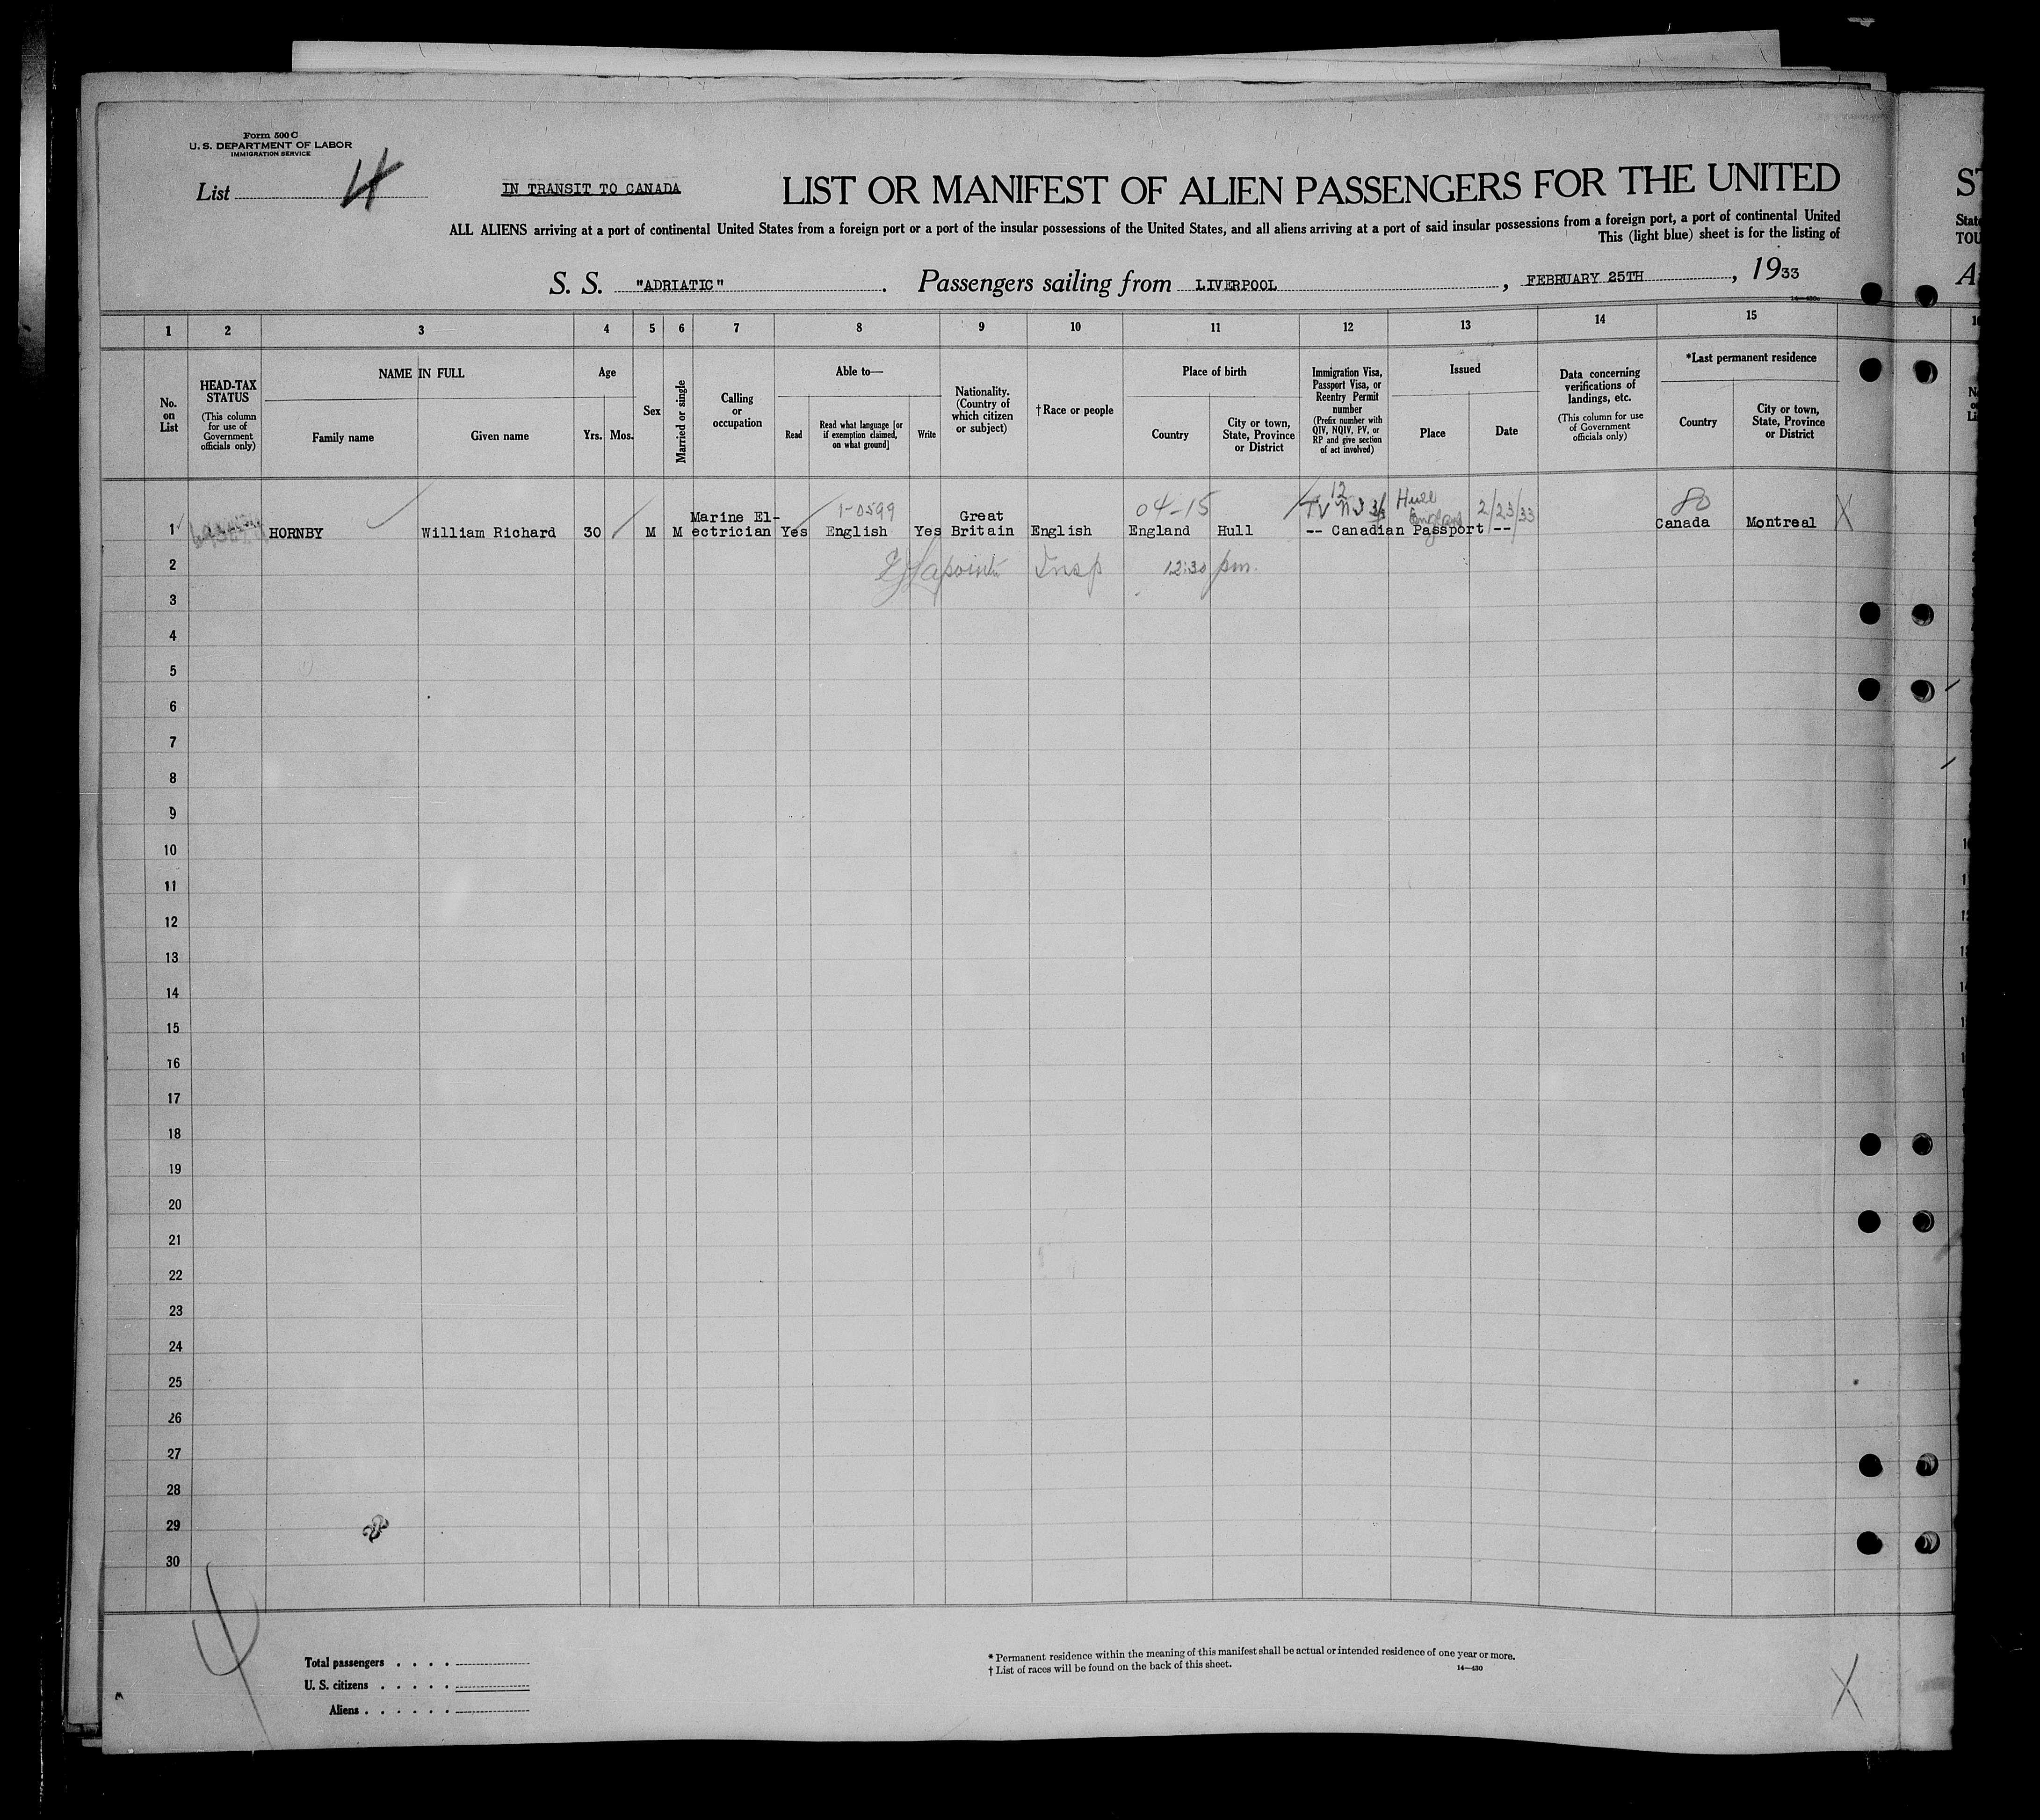 Form 500 C
U. S. DEPARTMENT OF LABOR
IMMIGRATION SERVICE
List 4
IN TRANSIT TO CANADA
LIST OR MANIFEST OF ALIEN PASSENGERS FOR THE UNITED
ALL ALIENS arriving at a port of continental United States from a foreign port or a port of the insular possessions of the United States, and all aliens arriving at a port of said insular possessions from a foreign port, a port of continental United
This (light blue) sheet is for the listing of
S. S. "ADRIATIC". Passengers sailing from LIVERPOOL, FEBRUARY 25TH, 1933
1 2 3 4 5 6 7 8 9 10 11 12 13 14 15
No. on List
HEAD-TAX STATUS
(This column for use of Government officials only)
NAME IN FULL
Family name
Given name
Age
Yrs. Mos.
Sex
Married or single
Calling or occupation
Able to—
Read
Read what language [or if exemption claimed, on what ground]
Write
Nationality. (Country of which citizen or subject)
†Race or people
Place of birth
Country
City or town, State, Province or District
Immigration Visa, Passport Visa, or Reentry Permit number
(Prefix number with QIV, NQIV, PV, or RP and give section of act involved)
Issued
Place
Date
Data concerning verifications of landings, etc.
(This column for use of Government officials only)
*Last permanent residence
Country
City or town, State, Province or District
1-0599 04-15 12 Hull England 2/23/33 80
1 HORNBY William Richard 30 M M Marine Electrician Yes English Yes Great Britain English England Hull -- Canadian Passport -- Canada Montreal X
2 Insp 12:30 pm.
3
4
5
6
7
8
9
10
11
12
13
14
15
16
17
18
19
20
21
22
23
24
25
26
27
28
29
30
Total passengers . . . .
U. S. citizens . . . . .
Aliens . . . . . .
* Permanent residence within the meaning of this manifest shall be actual or intended residence of one year or more.
† List of races will be found on the back of this sheet.
14—430
X